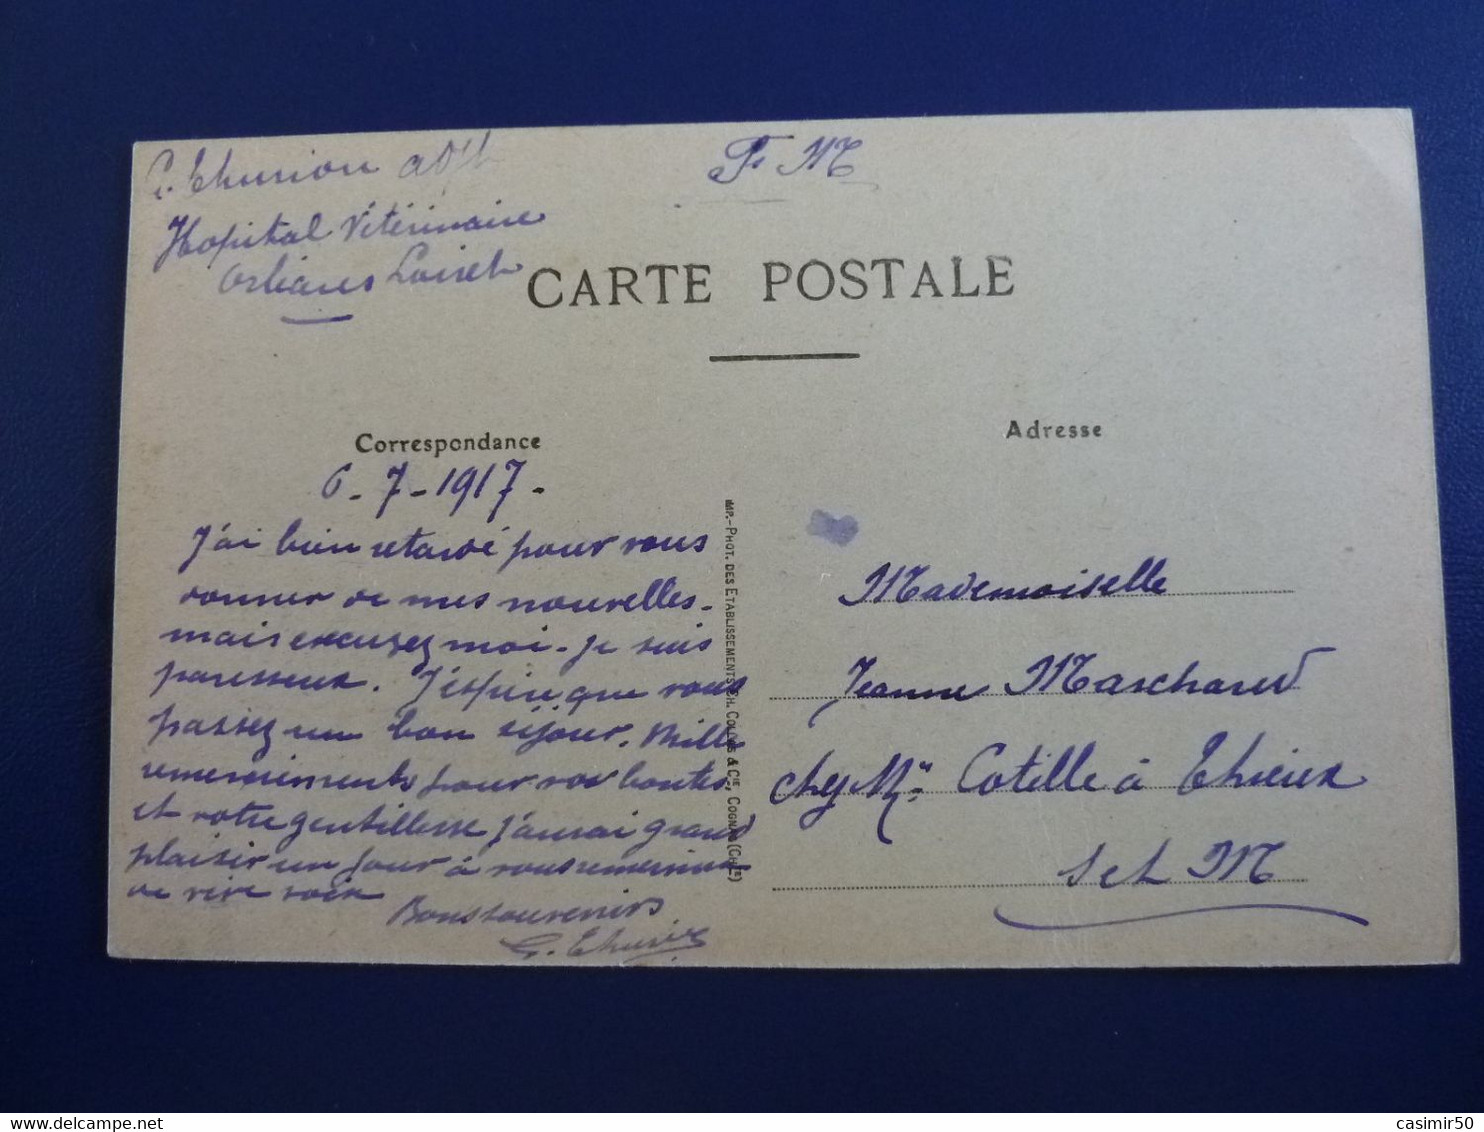 Thurion
Fs M
Hopital Vétérinaire
Orléans Loiret
CARTE POSTALE
Correspondance
Adresse
6-7-1917-
J'ai bien retardé pour vous
donner de mes nouvelles.
mais excusez moi. Je suis
paresseux. J'espère que vous
passez un bon séjour. Mille
remerciements pour vos bontés
et votre gentillesse j'aurai grand
plaisir un jour à vous remercier
de vive voix
Bons souvenirs
IMP.-PHOT. DES ETABLISSEMENTS CH. COLLAS & CIE, COGNAC (CHTE)
Mademoiselle
Jeanne Marchand
chez Mr Cotille à Thieux
Set M
casimir50